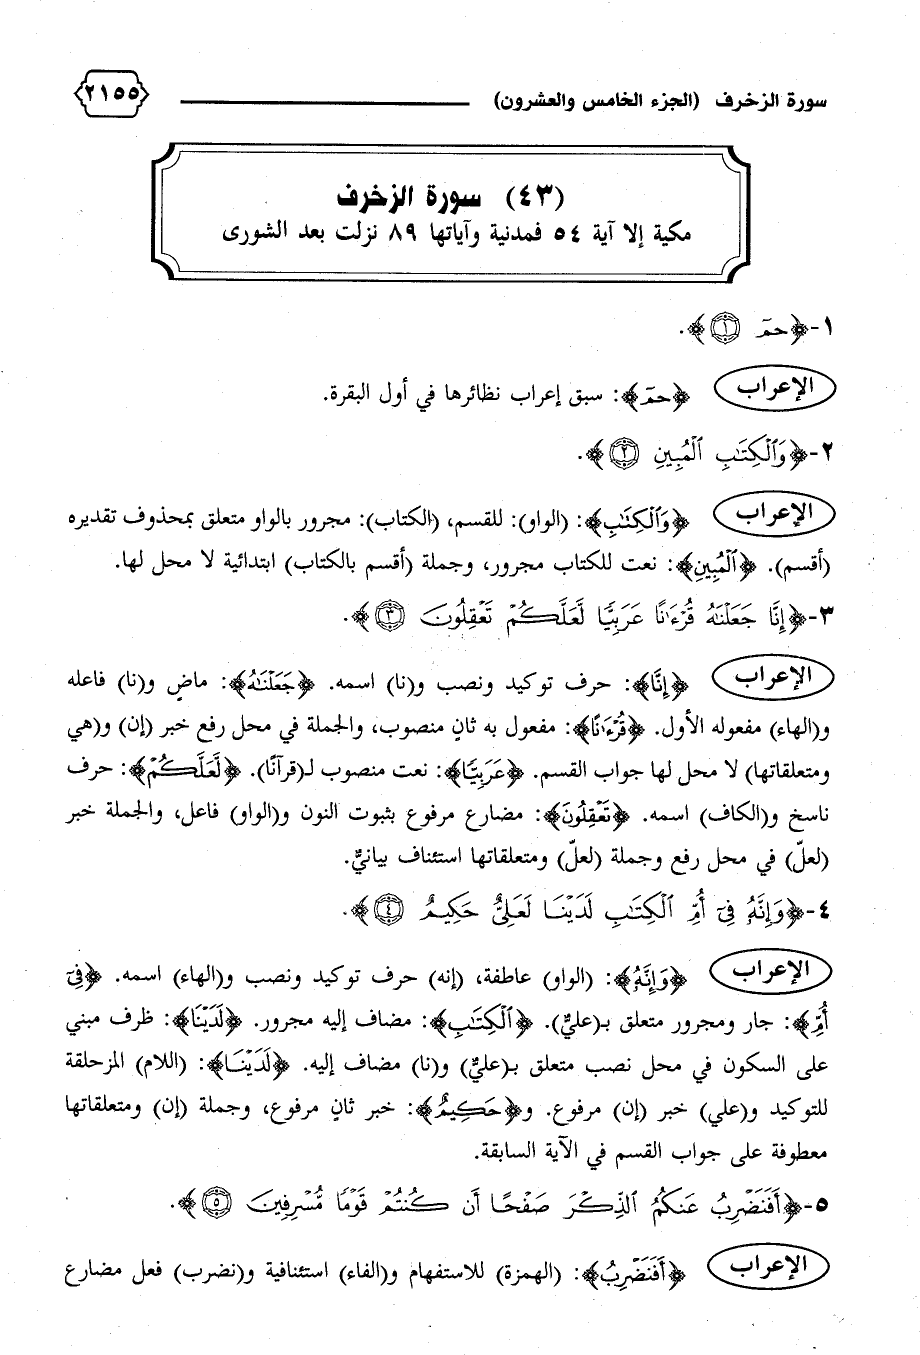 سورة الزخرف (الجزء الخامس والعشرون) ٢١٥٥
(٤٣) سورة الزخرف
مكية إلا آية ٥٤ فمدنية وآياتها ٨٩ نزلت بعد الشورى
١-﴿حمٓ ١﴾.
الإعراب ﴿حمٓ﴾: سبق إعراب نظائرها في أول البقرة.
٢-﴿وَٱلْكِتَٰبِ ٱلْمُبِينِ ٢﴾.
الإعراب ﴿وَٱلْكِتَٰبِ﴾: (الواو): للقسم، (الكتاب): مجرور بالواو متعلق بمحذوف تقديره
(أقسم). ﴿ٱلْمُبِينِ﴾: نعت للكتاب مجرور، وجملة (أقسم بالكتاب) ابتدائية لا محل لها.
٣-﴿إِنَّا جَعَلْنَٰهُ قُرْءَٰنًا عَرَبِيًّا لَّعَلَّكُمْ تَعْقِلُونَ ٣﴾.
الإعراب ﴿إِنَّا﴾: حرف توكيد ونصب و(نا) اسمه. ﴿جَعَلْنَٰهُ﴾: ماضٍ و(نا) فاعله
و(الهاء) مفعوله الأول. ﴿قُرْءَٰنًا﴾: مفعول به ثانٍ منصوب، والجملة في محل رفع خبر (إن) و(هي
ومتعلقاتها) لا محل لها جواب القسم. ﴿عَرَبِيًّا﴾: نعت منصوب لـ(قرآنًا). ﴿لَّعَلَّكُمْ﴾: حرف
ناسخ و(الكاف) اسمه. ﴿تَعْقِلُونَ﴾: مضارع مرفوع بثبوت النون و(الواو) فاعل، والجملة خبر
(لعلّ) في محل رفع وجملة (لعلّ) ومتعلقاتها استئناف بيانيٌّ.
٤-﴿وَإِنَّهُۥ فِىٓ أُمِّ ٱلْكِتَٰبِ لَدَيْنَا لَعَلِىٌّ حَكِيمٌ ٤﴾.
الإعراب ﴿وَإِنَّهُۥ﴾: (الواو) عاطفة، (إنه) حرف توكيد ونصب و(الهاء) اسمه. ﴿فِىٓ
أُمِّ﴾: جار ومجرور متعلق بـ(عليٌّ). ﴿ٱلْكِتَٰبِ﴾: مضاف إليه مجرور. ﴿لَدَيْنَا﴾: ظرف مبني
على السكون في محل نصب متعلق بـ(عليٌّ) و(نا) مضاف إليه. ﴿لَدَيْنَا﴾: (اللام) المزحلقة
للتوكيد و(علي) خبر (إن) مرفوع. و﴿حَكِيمٌ﴾: خبر ثانٍ مرفوع، وجملة (إن) ومتعلقاتها
معطوفة على جواب القسم في الآية السابقة.
٥-﴿أَفَنَضْرِبُ عَنكُمُ ٱلذِّكْرَ صَفْحًا أَن كُنتُمْ قَوْمًا مُّسْرِفِينَ ٥﴾.
الإعراب ﴿أَفَنَضْرِبُ﴾: (الهمزة) للاستفهام و(الفاء) استئنافية و(نضرب) فعل مضارع